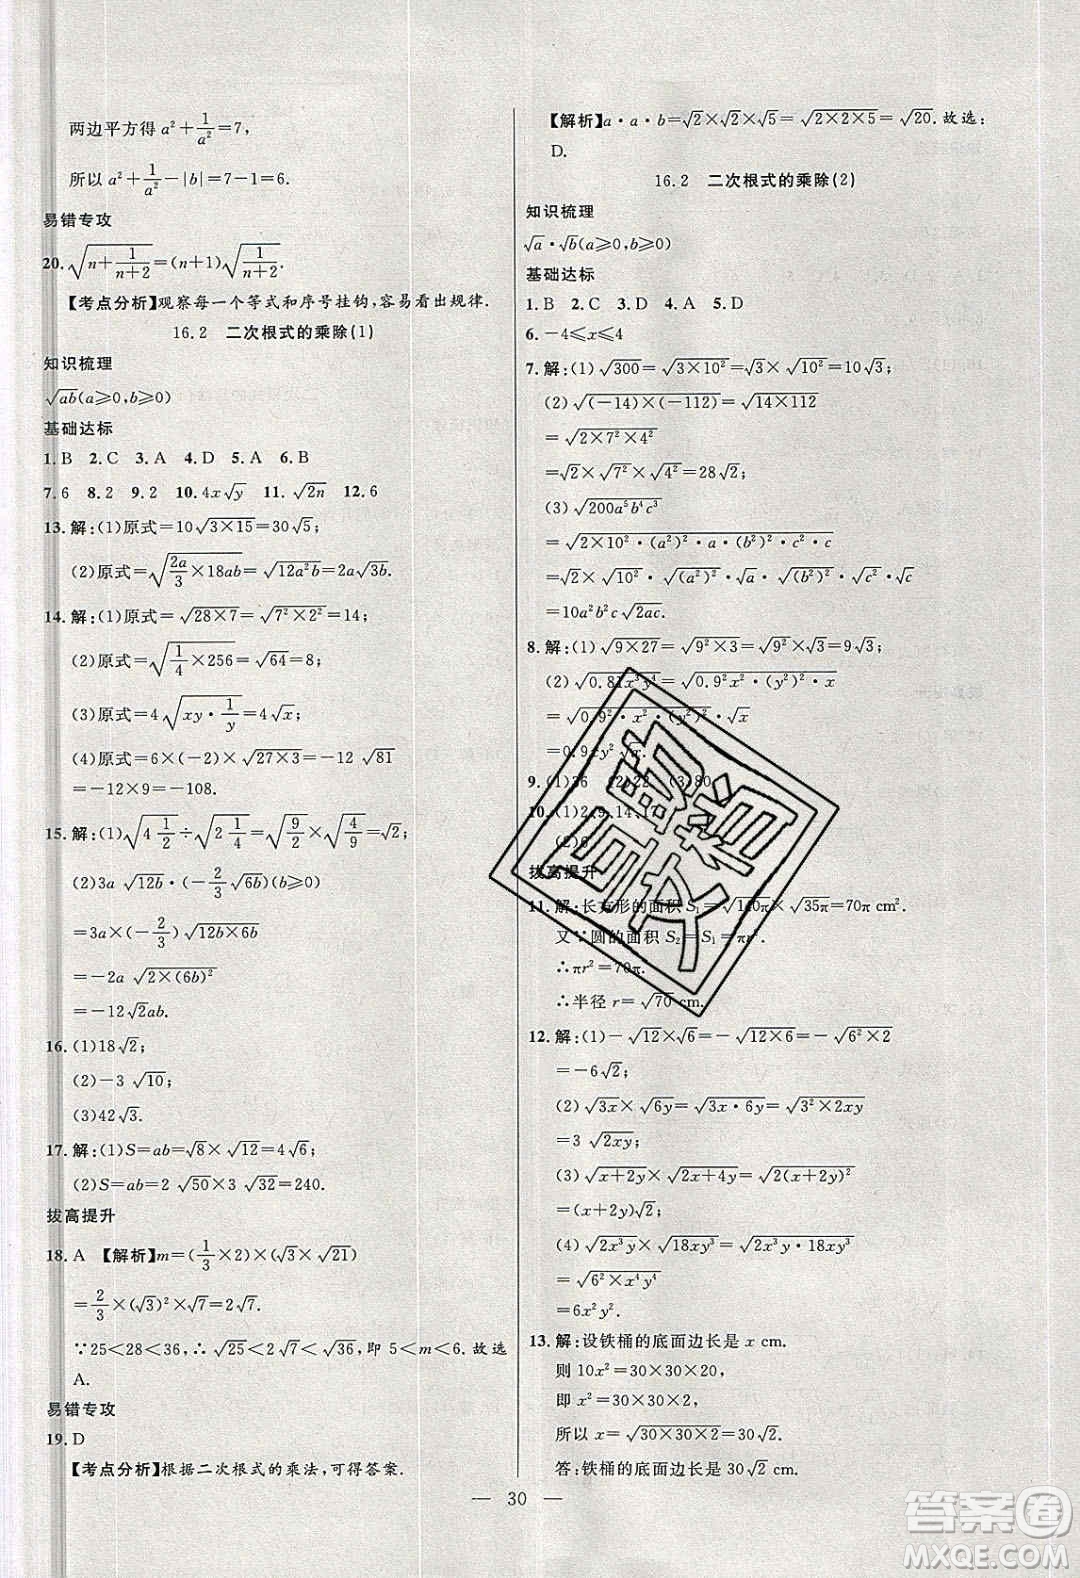 两边平方得 a²+1/a²=7,
所以 a²+1/a²-|b|=7-1=6.
易错专攻
20.√(n+1/(n+2))=(n+1)√(1/(n+2)).
【考点分析】观察每一个等式和序号挂钩,容易看出规律.
16.2 二次根式的乘除(1)
知识梳理
√ab(a≥0,b≥0)
基础达标
1.B 2.C 3.A 4.D 5.A 6.B
7.6 8.2 9.2 10.4x√y 11.√2n 12.6
13.解:(1)原式=10√(3×15)=30√5;
(2)原式=√(2a/3×18ab)=√(12a²b)=2a√3b.
14.解:(1)原式=√(28×7)=√(7²×2²)=14;
(2)原式=√(1/4×256)=√64=8;
(3)原式=4√(xy·1/y)=4√x;
(4)原式=6×(-2)×√(27×3)=-12√81
=-12×9=-108.
15.解:(1)√(4 1/2)÷√(2 1/4)=√(9/2)×√(4/9)=√2;
(2)3a√12b·(-2/3√6b)(b≥0)
=3a×(-2/3)√(12b×6b)
=-2a√(2×(6b)²)
=-12√2ab.
16.(1)18√2;
(2)-3√10;
(3)42√3.
17.解:(1)S=ab=√8×√12=4√6;
(2)S=ab=2√50×3√32=240.
拔高提升
18.A 【解析】m=(1/3×2)×(√3×√21)
=2/3×(√3)²×√7=2√7.
∵25<28<36,∴√25<2√7<√36,即 5<m<6.故选
A.
易错专攻
19.D
【考点分析】根据二次根式的乘法,可得答案.
【解析】a·a·b=√2×√2×√5=√(2×2×5)=√20.故选:
D.
16.2 二次根式的乘除(2)
知识梳理
√a·√b(a≥0,b≥0)
基础达标
1.B 2.C 3.D 4.A 5.D
6.-4≤x≤4
7.解:(1)√300=√(3×10²)=10√3;
(2)√((-14)×(-112))=√(14×112)
=√(2×7²×4²)
=√2×√7²×√4²=28√2;
(3)√(200a⁵b⁴c³)
=√(2×10²·(a²)²·a·(b²)²·c²·c)
=√2×√10²·√(a²)²·√a·√(b²)²·√c²·√c
=10a²b²c√2ac.
8.解:(1)√(9×27)=√(9²×3)=√9²×√3=9√3;
(2)√(0.81x³y⁴)=√(0.9²x²·(y²)²·x)
=√0.9²·√x²·√(y²)²·√x
=0.9xy²√x.
9.(1)36 (2)22 (3)80
10.(1)2,9,14,17
(2)6
拔高提升
11.解:长方形的面积 S₁=√140π×√35π=70π cm².
又∵圆的面积 S₂=S₁=πr².
∴πr²=70π.
∴半径 r=√70 cm.
12.解:(1)-√12×√6=-√(12×6)=-√(6²×2)
=-6√2;
(2)√3x×√6y=√(3x·6y)=√(3²×2xy)
=3√2xy;
(3)√(x+2y)×√(2x+4y)=√(2×(x+2y)²)
=(x+2y)√2;
(4)√(2x³y)×√(18xy³)=√(2x³y·18xy³)
=√(6²×x⁴y⁴)
=6x²y².
13.解:设铁桶的底面边长是 x cm.
则 10x²=30×30×20,
即 x²=30×30×2,
所以 x=√(30×30×2)=30√2.
答:铁桶的底面边长是 30√2 cm.
— 30 —
答案圈
MXQE.COM